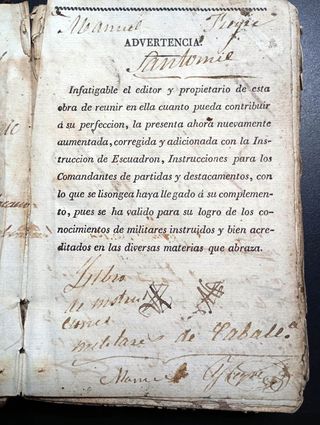 Manuel
ADVERTENCIA.
Santomé
Infatigable el editor y propietario de esta
obra de reunir en ella cuanto pueda contribuir
á su perfeccion, la presenta ahora nuevamente
aumentada, corregida y adicionada con la Ins-
truccion de Escuadron, Instrucciones para los
Comandantes de partidas y destacamentos, con
lo que se lisongea haya llegado á su complemen-
to, pues se ha valido para su logro de los co-
nocimientos de militares instruidos y bien acre-
ditados en las diversas materias que abraza.
Libro
de instruc
ciones
militares de Caball.ª